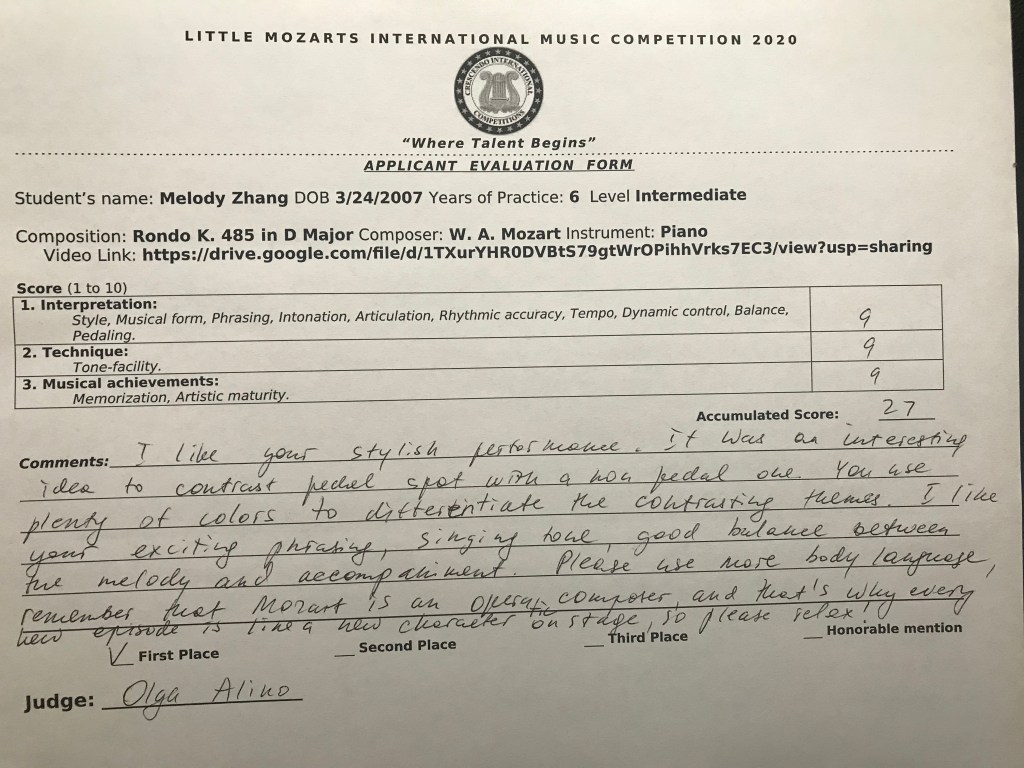 LITTLE MOZARTS INTERNATIONAL MUSIC COMPETITION 2020
CRESCENDO INTERNATIONAL
COMPETITIONS
“Where Talent Begins”
APPLICANT EVALUATION FORM
Student’s name: Melody Zhang DOB 3/24/2007 Years of Practice: 6 Level Intermediate
Composition: Rondo K. 485 in D Major Composer: W. A. Mozart Instrument: Piano
Video Link: https://drive.google.com/file/d/1TXurYHR0DVBtS79gtWrOPihhVrks7EC3/view?usp=sharing
Score (1 to 10)
1. Interpretation:
Style, Musical form, Phrasing, Intonation, Articulation, Rhythmic accuracy, Tempo, Dynamic control, Balance,
Pedaling.
9
2. Technique:
Tone-facility.
9
3. Musical achievements:
Memorization, Artistic maturity.
9
Accumulated Score: 27
Comments: I like your stylish performance. It was an interesting
idea to contrast pedal spot with a non pedal one. You use
plenty of colors to differentiate the contrasting themes. I like
your exciting phrasing, singing tone, good balance between
the melody and accompaniment. Please use more body language,
remember that Mozart is an operatic composer, and that's why every
new episode is like a new character on stage, so please relax!
V First Place __ Second Place __ Third Place __ Honorable mention
Judge: Olga Alino